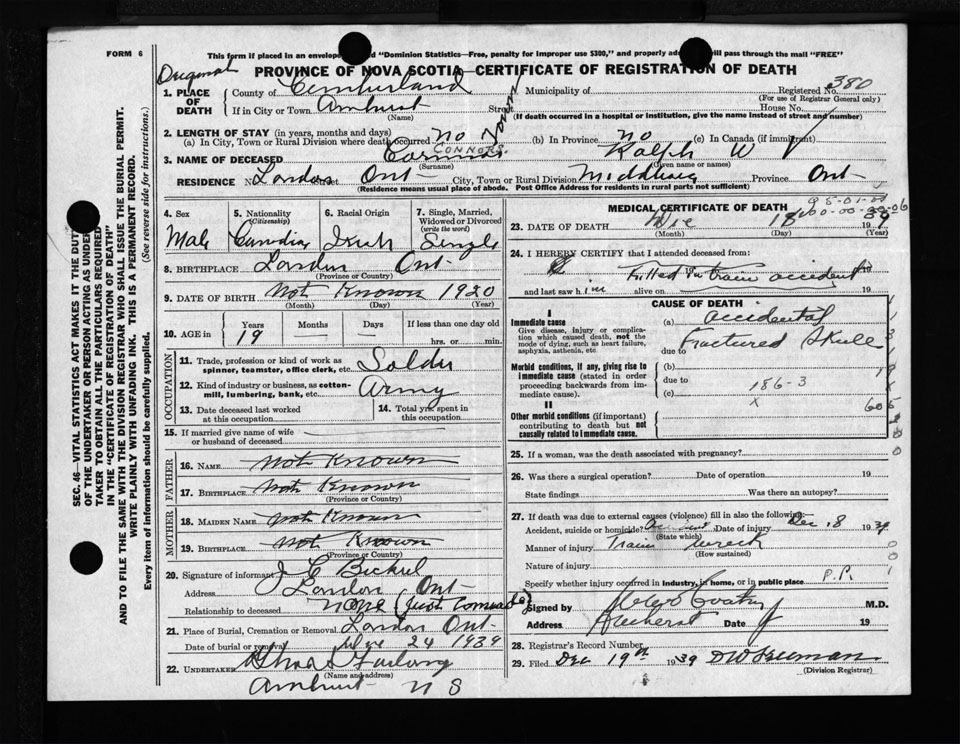 FORM 6
This form if placed in an envelope "Dominion Statistics—Free, penalty for improper use $300," and properly will pass through the mail "FREE"
Original
PROVINCE OF NOVA SCOTIA—CERTIFICATE OF REGISTRATION OF DEATH
1. PLACE OF DEATH
County of Cumberland Municipality of Registered No. 380
(For use of Registrar General only)
If in City or Town Amherst Street House No.
(Name) (If death occurred in a hospital or institution, give the name instead of street and number)
2. LENGTH OF STAY (in years, months and days)
(a) In City, Town or Rural Division where death occurred no (b) In Province no (c) In Canada (if immigrant)
CONNORS.
3. NAME OF DECEASED Ralph W
(Surname) (Given name or names)
RESIDENCE No. London Street Ont City, Town or Rural Division Middlesex Province Ont
(Residence means usual place of abode. Post Office Address for residents in rural parts not sufficient)
4. Sex
Male
5. Nationality (Citizenship)
Canadian
6. Racial Origin
Irish
7. Single, Married, Widowed or Divorced (write the word)
Single
8. BIRTHPLACE London Ont
(Province or Country)
9. DATE OF BIRTH Not Known 1920
(Month) (Day) (Year)
10. AGE in
Years Months Days If less than one day old
19 — — hrs. or min.
OCCUPATION
11. Trade, profession or kind of work as spinner, teamster, office clerk, etc. Soldier
12. Kind of industry or business, as cotton-mill, lumbering, bank, etc. Army
13. Date deceased last worked at this occupation
14. Total yrs. spent in this occupation
15. If married give name of wife or husband of deceased
FATHER
16. NAME Not Known
17. BIRTHPLACE Not Known
(Province or Country)
MOTHER
18. MAIDEN NAME Not Known
19. BIRTHPLACE Not Known
(Province or Country)
20. Signature of informant
Address London Ont
Relationship to deceased none (Just Comrade)
21. Place of Burial, Cremation or Removal London Ont
Date of burial or removal Dec 24 1939
22. UNDERTAKER
(Name and address)
Amherst N S
MEDICAL CERTIFICATE OF DEATH
23. DATE OF DEATH Dec 18 1939
(Month) (Day) (Year)
24. I HEREBY CERTIFY that I attended deceased from:
Killed in train accident 19
and last saw him alive on 19
CAUSE OF DEATH
I
Immediate cause
Give disease, injury or complication which caused death, not the mode of dying, such as heart failure, asphyxia, asthenia, etc.
(a) accidental
Fractured Skull
due to
Morbid conditions, if any, giving rise to immediate cause (stated in order proceeding backwards from immediate cause).
(b)
due to
186-3
(c)
II
Other morbid conditions (if important) contributing to death but not causally related to immediate cause.
25. If a woman, was the death associated with pregnancy?
26. Was there a surgical operation? Date of operation 19
State findings Was there an autopsy?
27. If death was due to external causes (violence) fill in also the following:
Accident, suicide or homicide? Accident Date of injury Dec 18 1939
(State which)
Manner of injury Train wreck
(How sustained)
Nature of injury
Specify whether injury occurred in industry, in home, or in public place P.P.
Signed by M.D.
Address Amherst Date 19
28. Registrar's Record Number
29. Filed Dec 19th 1939
(Division Registrar)
SEC. 46—VITAL STATISTICS ACT MAKES IT THE DUTY
OF THE UNDERTAKER OR PERSON ACTING AS UNDER-
TAKER TO OBTAIN ALL THE PARTICULARS REQUIRED
IN THE "CERTIFICATE OF REGISTRATION OF DEATH"
AND TO FILE THE SAME WITH THE DIVISION REGISTRAR WHO SHALL ISSUE THE BURIAL PERMIT.
WRITE PLAINLY WITH UNFADING INK. THIS IS A PERMANENT RECORD.
Every item of information should be carefully supplied. (See reverse side for instructions.)